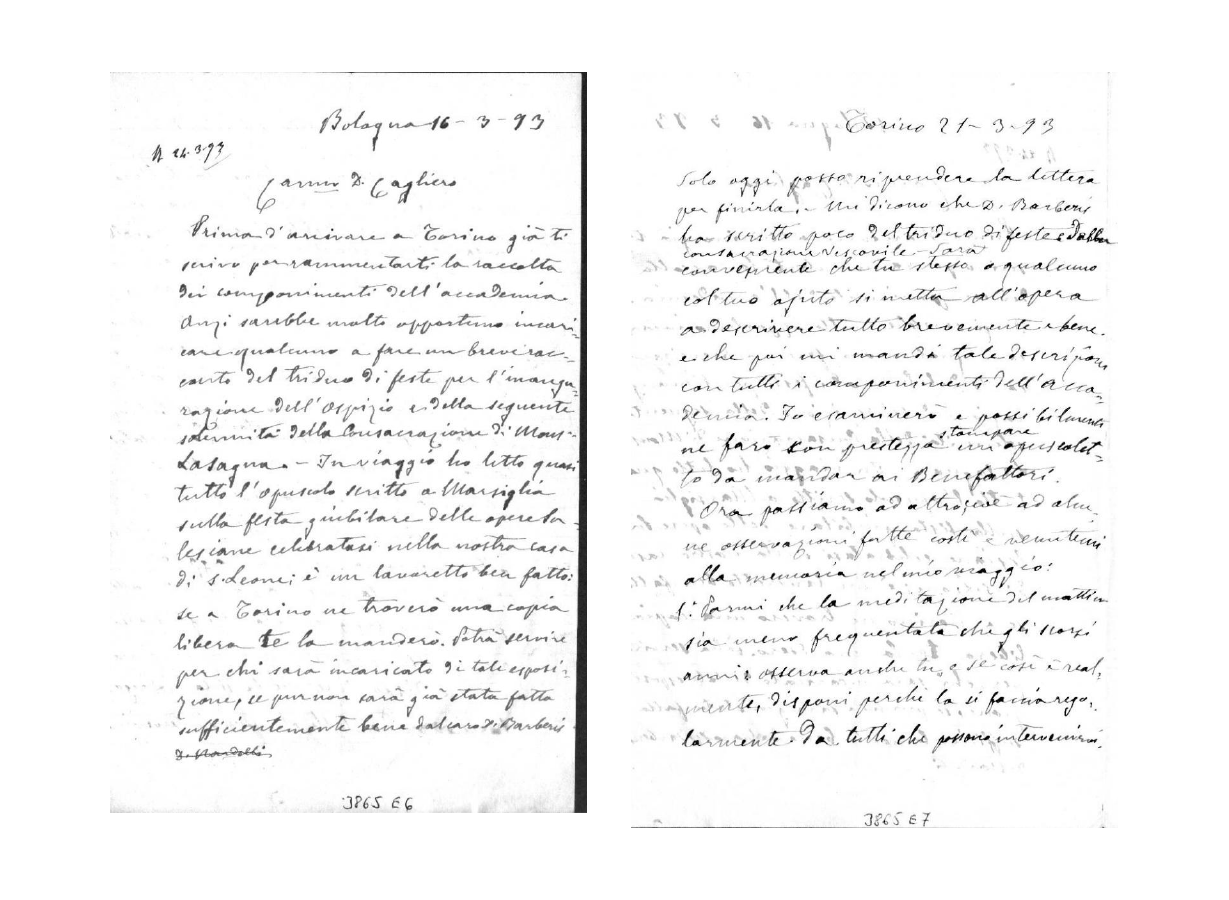 Bologna 16-3-93
R 24.3.93
Carmo D. Cagliero
Prima d'arrivare a Torino già ti
scrivo per rammentarti la raccolta
dei componimenti dell'accademia.
Anzi sarebbe molto opportuno incari-
care qualcuno a fare un breve rac-
conto del triduo di feste per l'inaugu-
razione dell'Ospizio e della seguente
solennità della Consacrazione di Mons.
Lasagna. - In viaggio ho letto quasi
tutto l'opuscolo scritto a Marsiglia
sulla festa giubilare delle opere Sa-
lesiane celebratasi nella nostra casa
di S. Leone; è un lavoretto ben fatto:
se a Torino ne troverò una copia
libera te la manderò. Potrà servire
per chi sarà incaricato di tale esposi-
zione, se pur non sarà già stata fatta
sufficientemente bene dal caro D. Barberis
3865 E6
Torino 21-3-93
Solo oggi posso riprendere la lettera
per finirla. - Mi dicono che D. Barberis
ha scritto poco del triduo di feste e della
consacrazione Vescovile. Sarà
conveniente che tu stesso o qualcuno
col tuo ajuto si metta all'opera
a descrivere tutto brevemente e bene.
e che poi mi mandi tale descrizione
con tutti i componimenti dell'acca-
demia. Io esaminerò e possibilmente
ne farò con prestezza stampare un opuscolet-
to da mandar ai Benefattori.
Ora passiamo ad altro, cioè ad alcu-
ne osservazioni fatte costì e venutemi
alla memoria nel mio viaggio:
1° Parmi che la meditazione del mattin
sia meno frequentata che gli scorsi
anni: osserva anche tu, e se così è real-
mente, disponi perchè la si faccia rego-
larmente da tutti che possono intervenirvi.
3865 E7